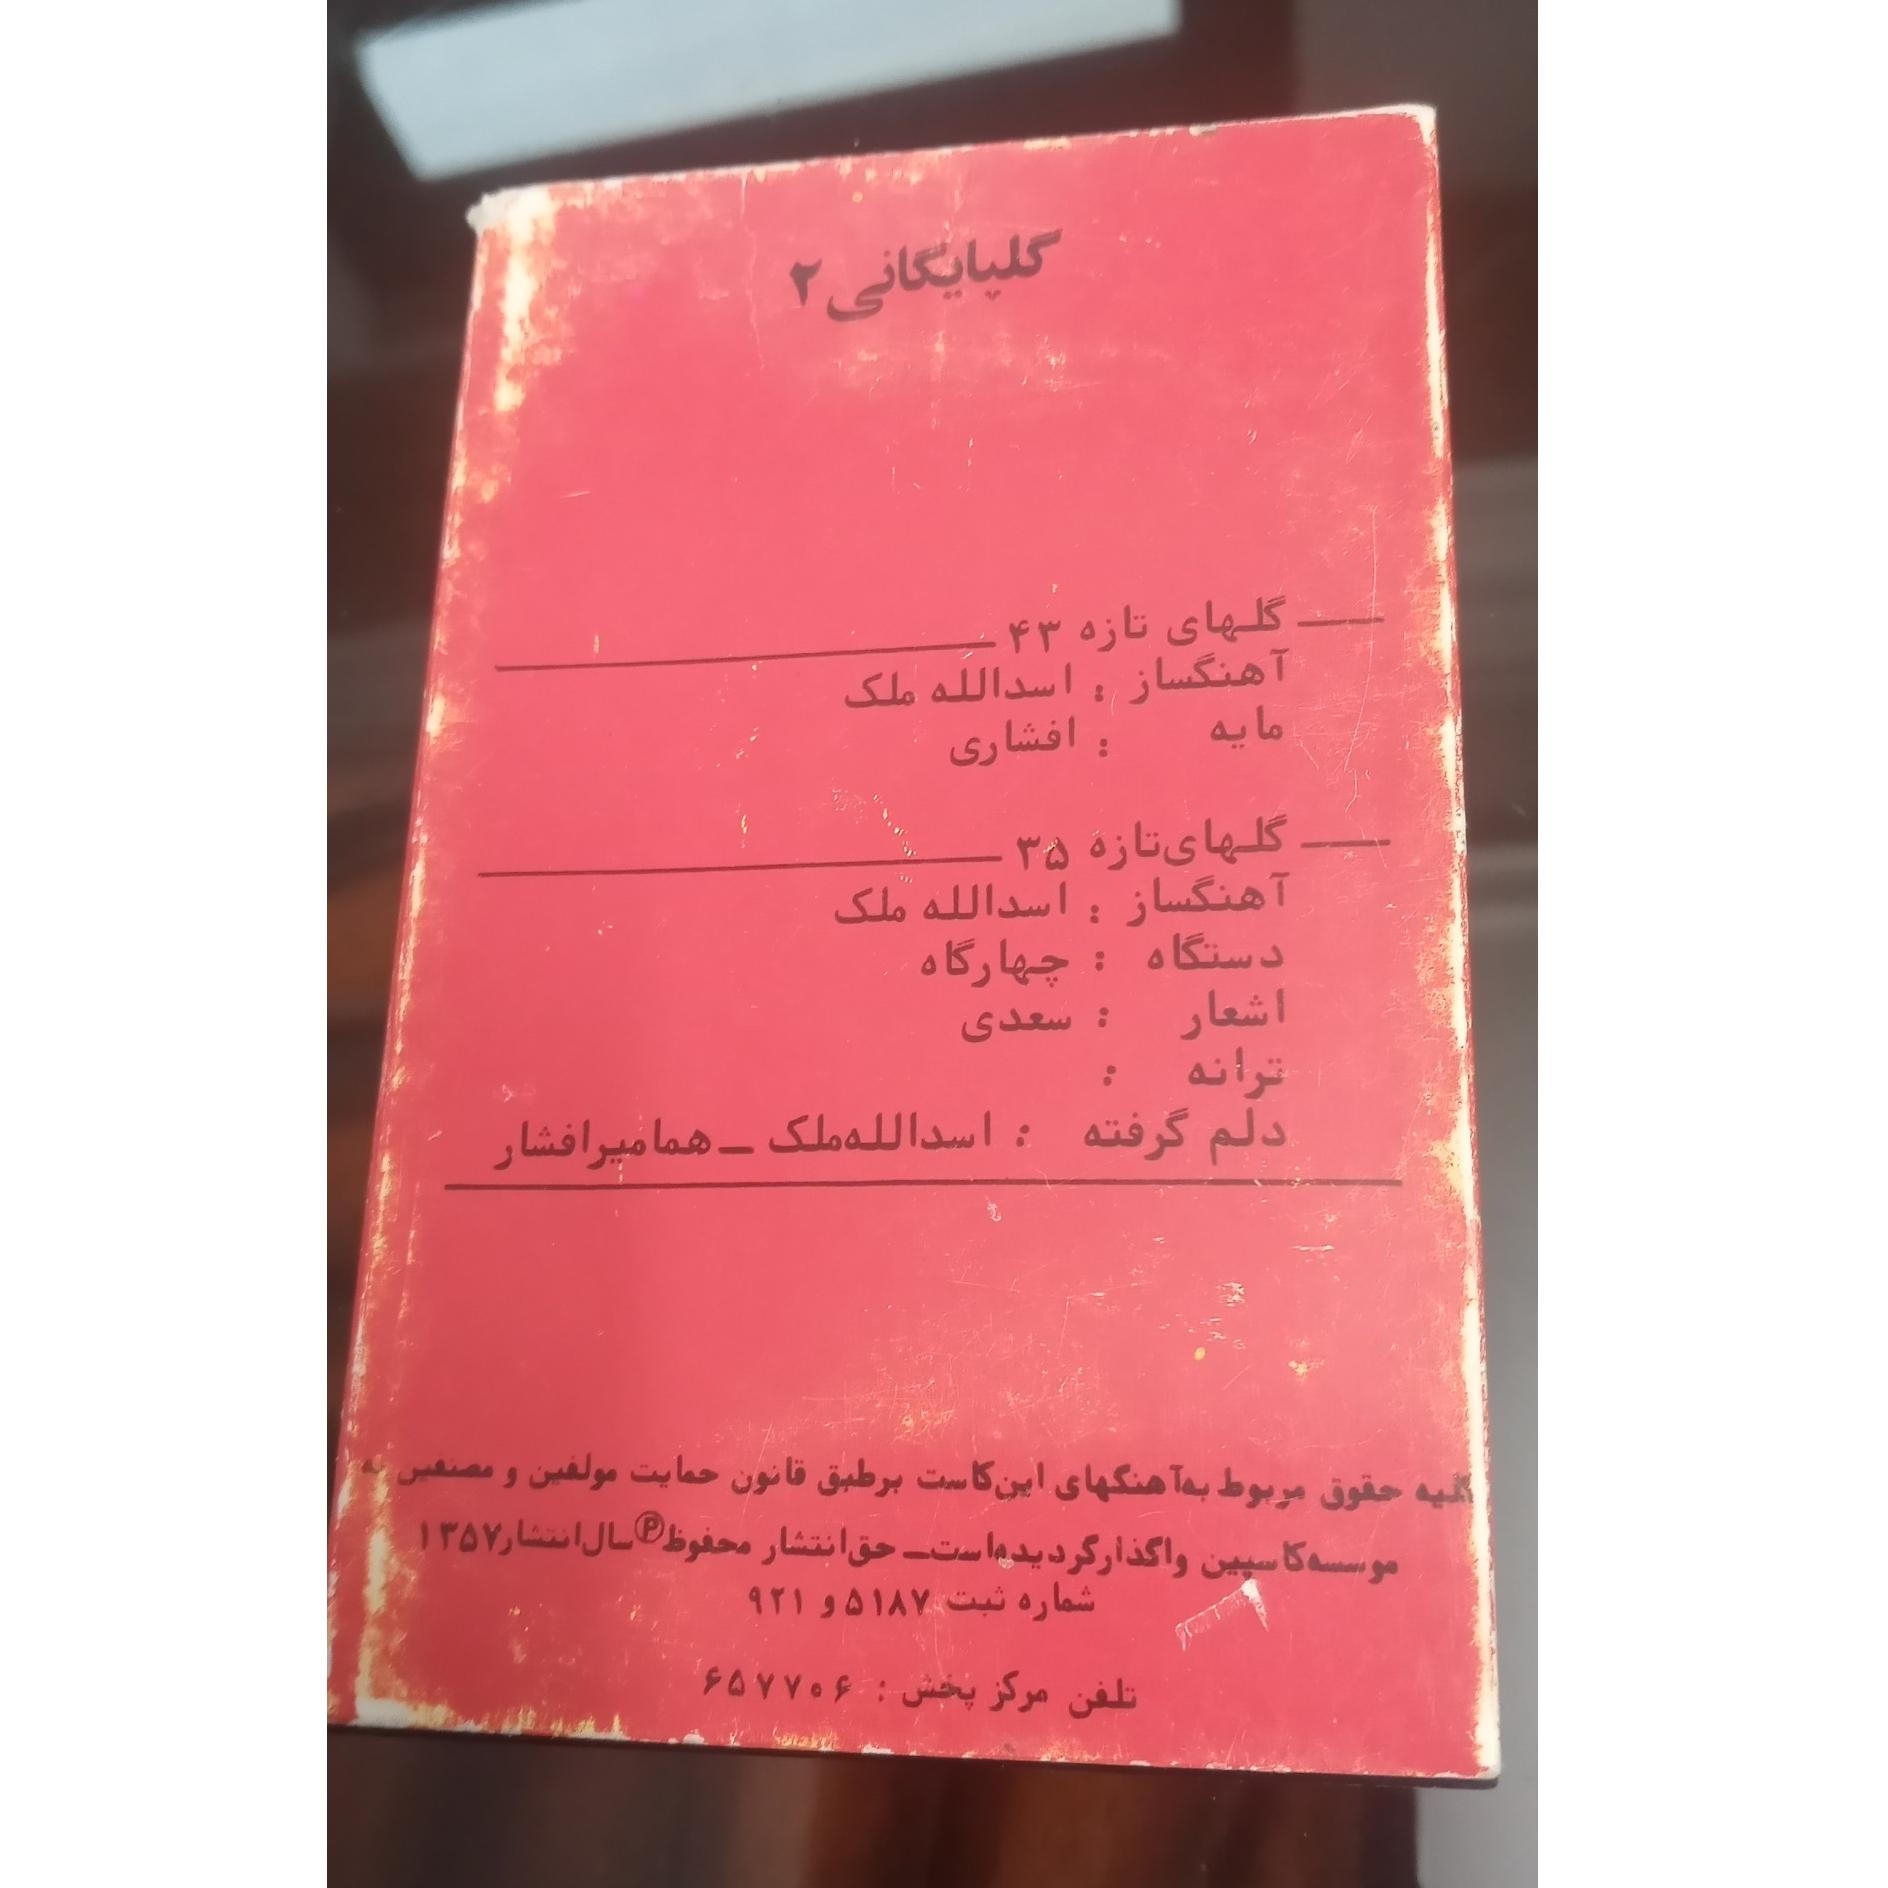 گلپایگانی ۲
گلهای تازه ۴۳
آهنگساز : اسدالله ملک
مایه : افشاری
گلهای تازه ۳۵
آهنگساز : اسدالله ملک
دستگاه : چهارگاه
اشعار : سعدی
ترانه :
دلم گرفته : اسدالله ملک ــ هما میرافشار
کلیه حقوق مربوط به آهنگهای این کاست برطبق قانون حمایت مولفین و مصنفین به
موسسه کاسپین واگذار گردیده است ــ حق انتشار محفوظ Ⓟ سال انتشار ۱۳۵۷
شماره ثبت ۵۱۸۷ و ۹۲۱
تلفن مرکز پخش : ۶۵۷۷۰۶